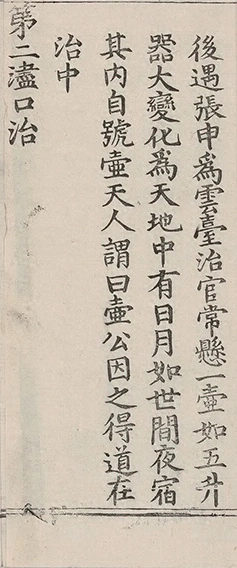 後遇張申為雲臺治官常懸一壺如五升
器大變化為天地中有日月如世間夜宿
其内自號壺天人謂曰壺公因之得道在
治中
第二濜口治